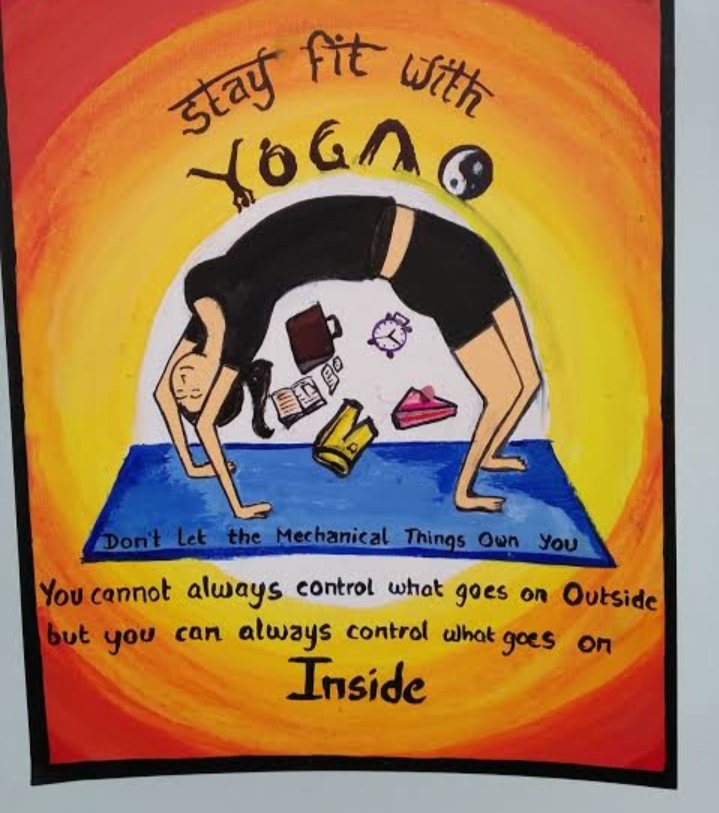 stay fit with
YOGA
Don't Let the Mechanical Things Own You
You cannot always control what goes on Outside
but you can always control what goes on
Inside